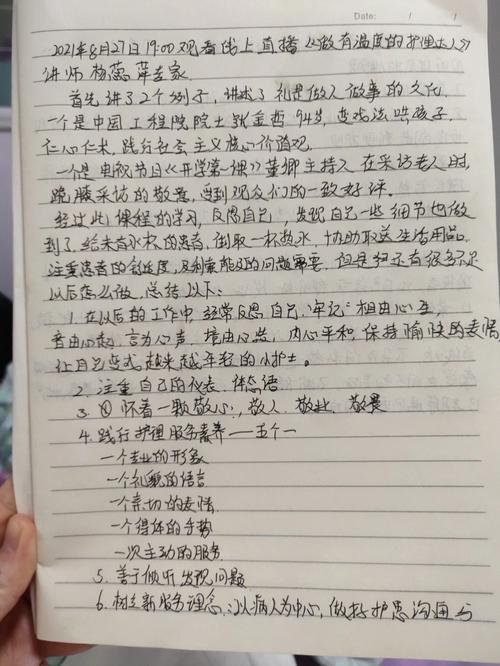 Date: / /
2021年8月27日 19:00 观看线上直播《做有温度的护理达人》
讲师 杨蕊 萍老家
首先讲了2个例子,讲述了礼是做人做事的文化,
一个是中国工程院院士张金哲94岁,变戏法哄孩子,
仁心仁术,践行社会主义核心价值观。
一个是电视节目《开学第一课》董卿主持人在采访老人时
跪膝采访的敬意,受到观众们的一致好评。
经过此课程的学习,反思自己,发现自己一些细节也做
到了,给未有水杯的患者,倒取一杯热水,协助取送生活用品。
注重患者的舒适度,及时解能到的问题需要,但是狠还有很多不足
以后怎么做,总结以下:
1. 在以后的工作中,经常反思自己,牢记"相由心生,
音由心起,言为心声,境由心造,内心平和,保持愉快的表情,
让自己变成越来越年轻的小护士。
2. 注重自己的仪表、体态语
3. ④怀着一颗敬心:敬人、敬业、敬畏
4. 践行护理服务素养——五个一
一个专业的形象
一个礼貌的语言
一个亲切的表情
一个得体的手势
一次主动的服务
5. 善于倾听发现问题
6. 树立新服务理念:以病人为中心,做好护患沟通与